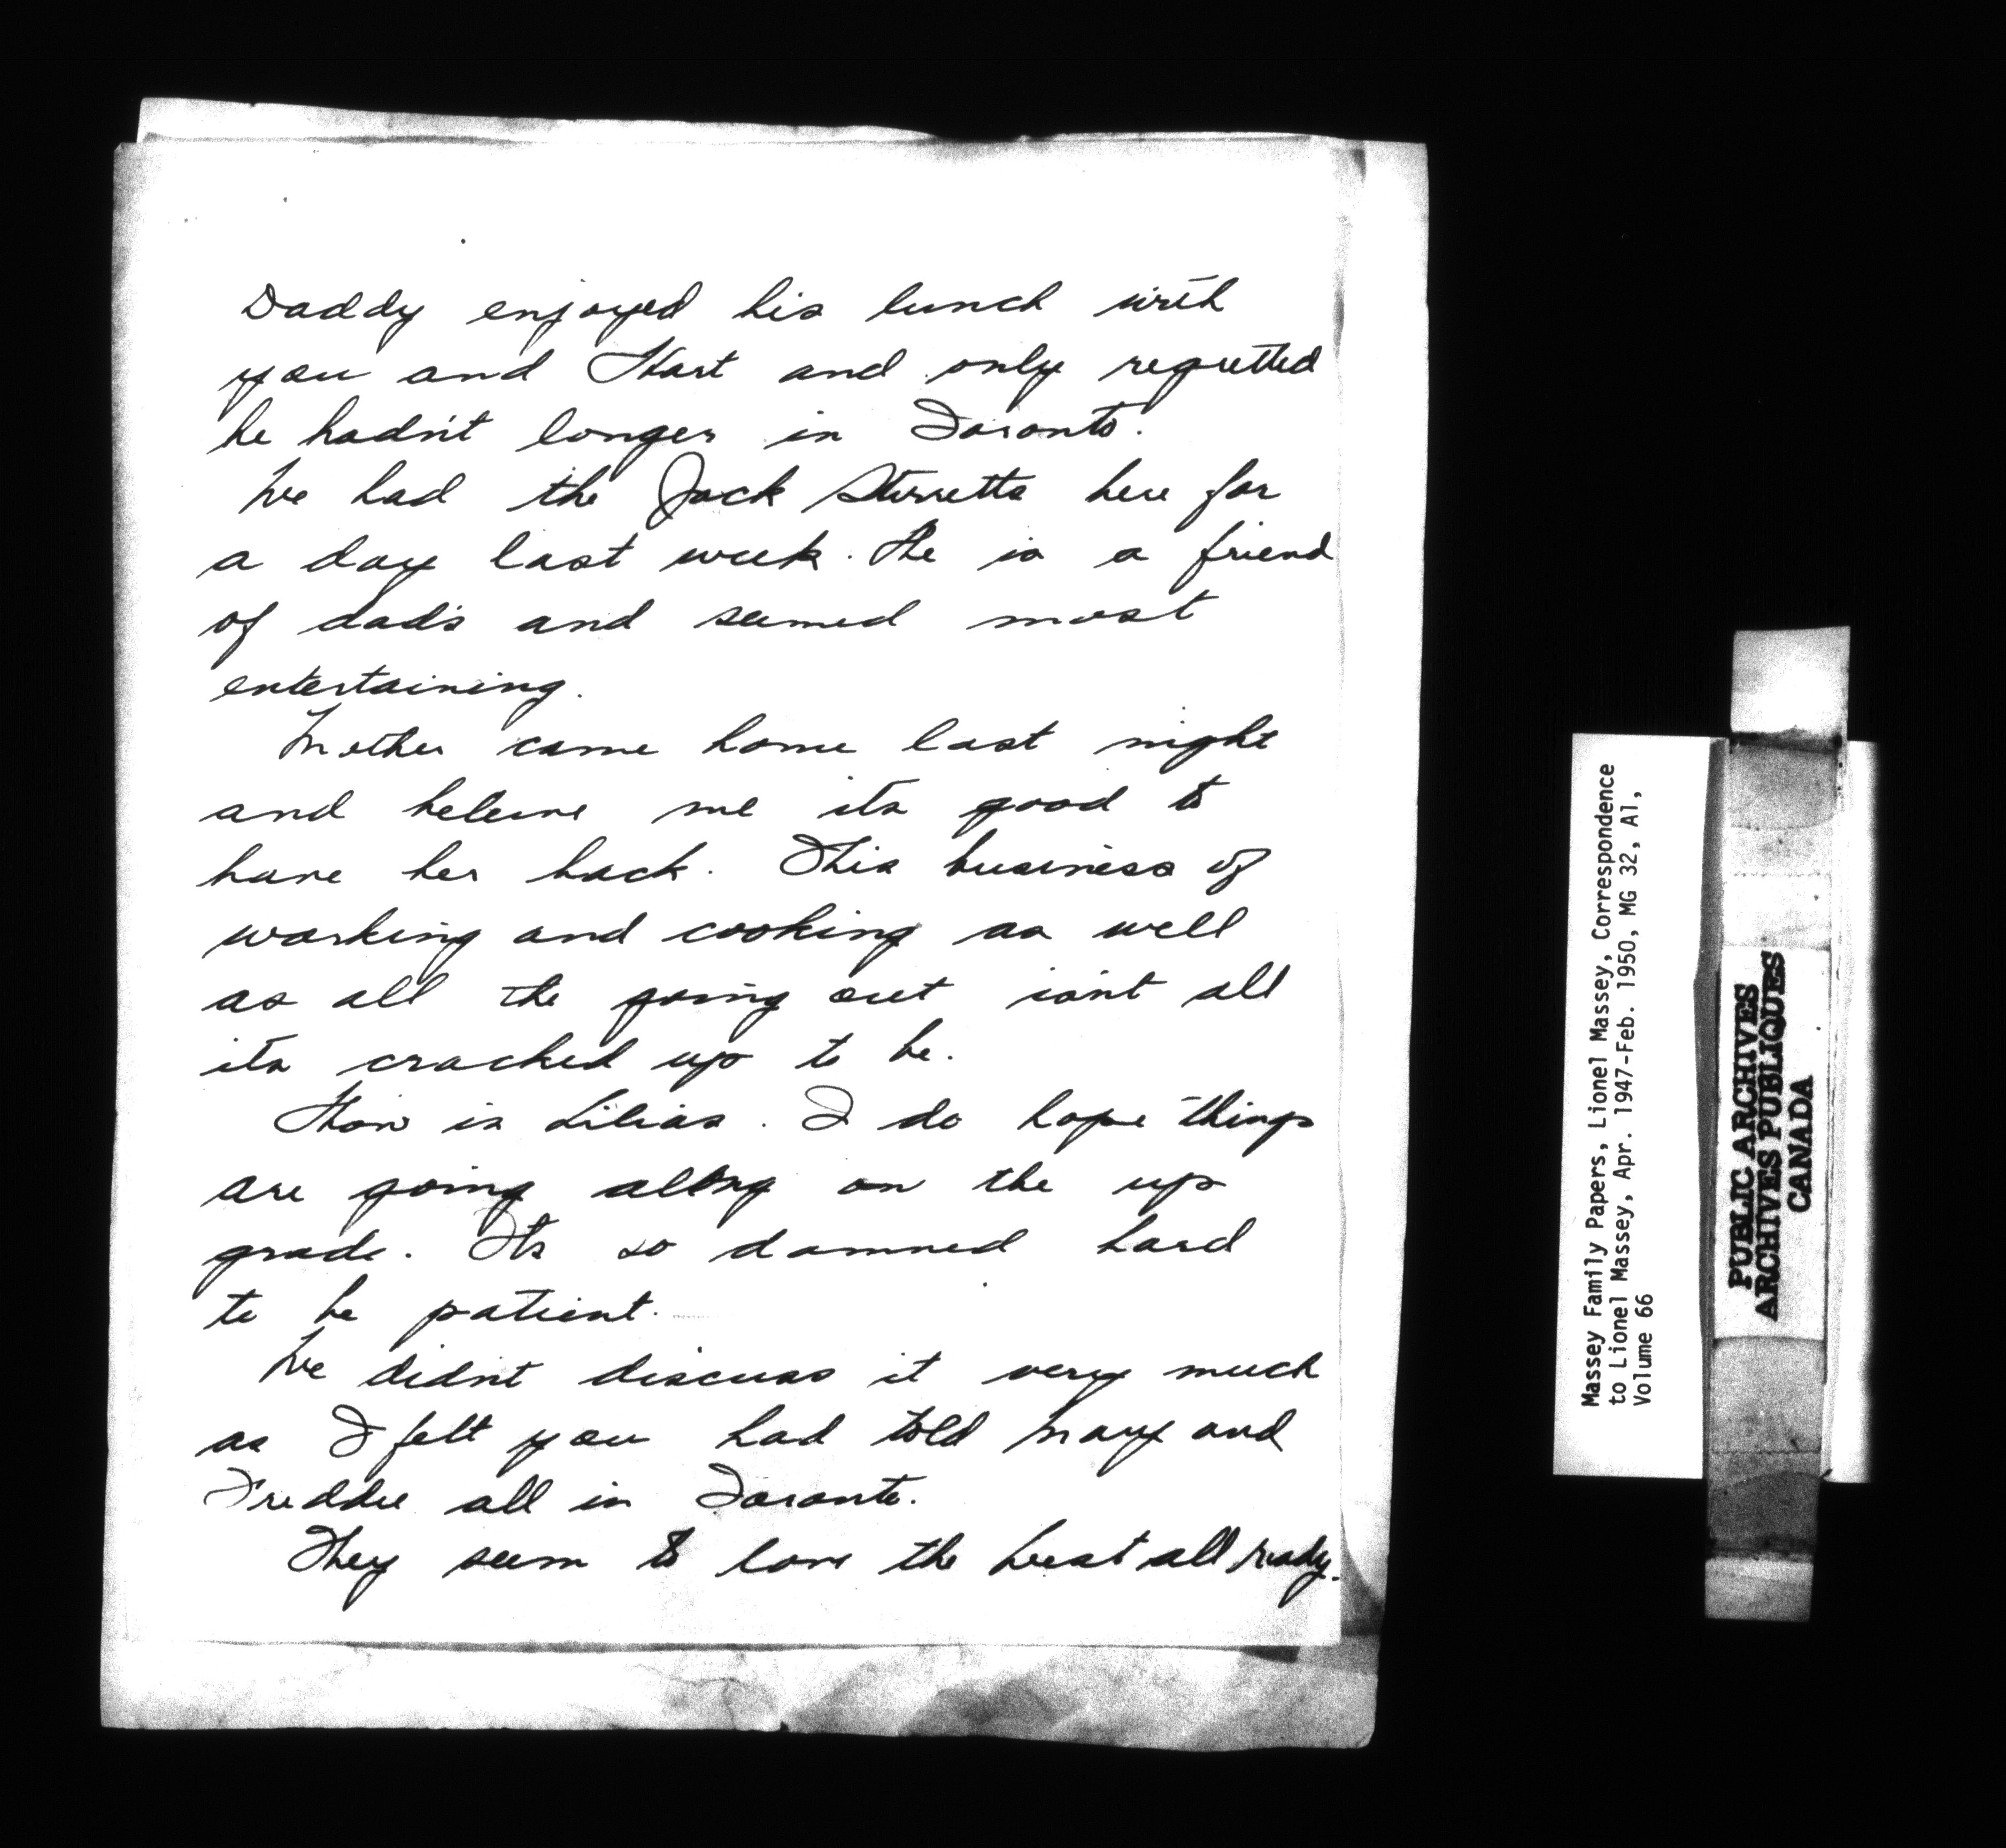 Daddy enjoyed his lunch with
you and Hart and only regretted
he hadn't longer in Toronto.
We had the Jack Sterretts here for
a day last week. He is a friend
of dad's and seemed most
entertaining.
Mother came home last night
and beleive me its good to
have her back. This business of
working and cooking as well
as all the going out isn't all
its cracked up to be.
How is Lilias. I do hope things
are going along on the up
grade. Its so damned hard
to be patient.
We didn't discuss it very much
as I felt you had told Mary and
Freddie all in Toronto.
They seem to love the heat all ready.
Massey Family Papers, Lionel Massey, Correspondence
to Lionel Massey, Apr. 1947-Feb. 1950, MG 32, A1,
Volume 66
PUBLIC ARCHIVES
ARCHIVES PUBLIQUES
CANADA